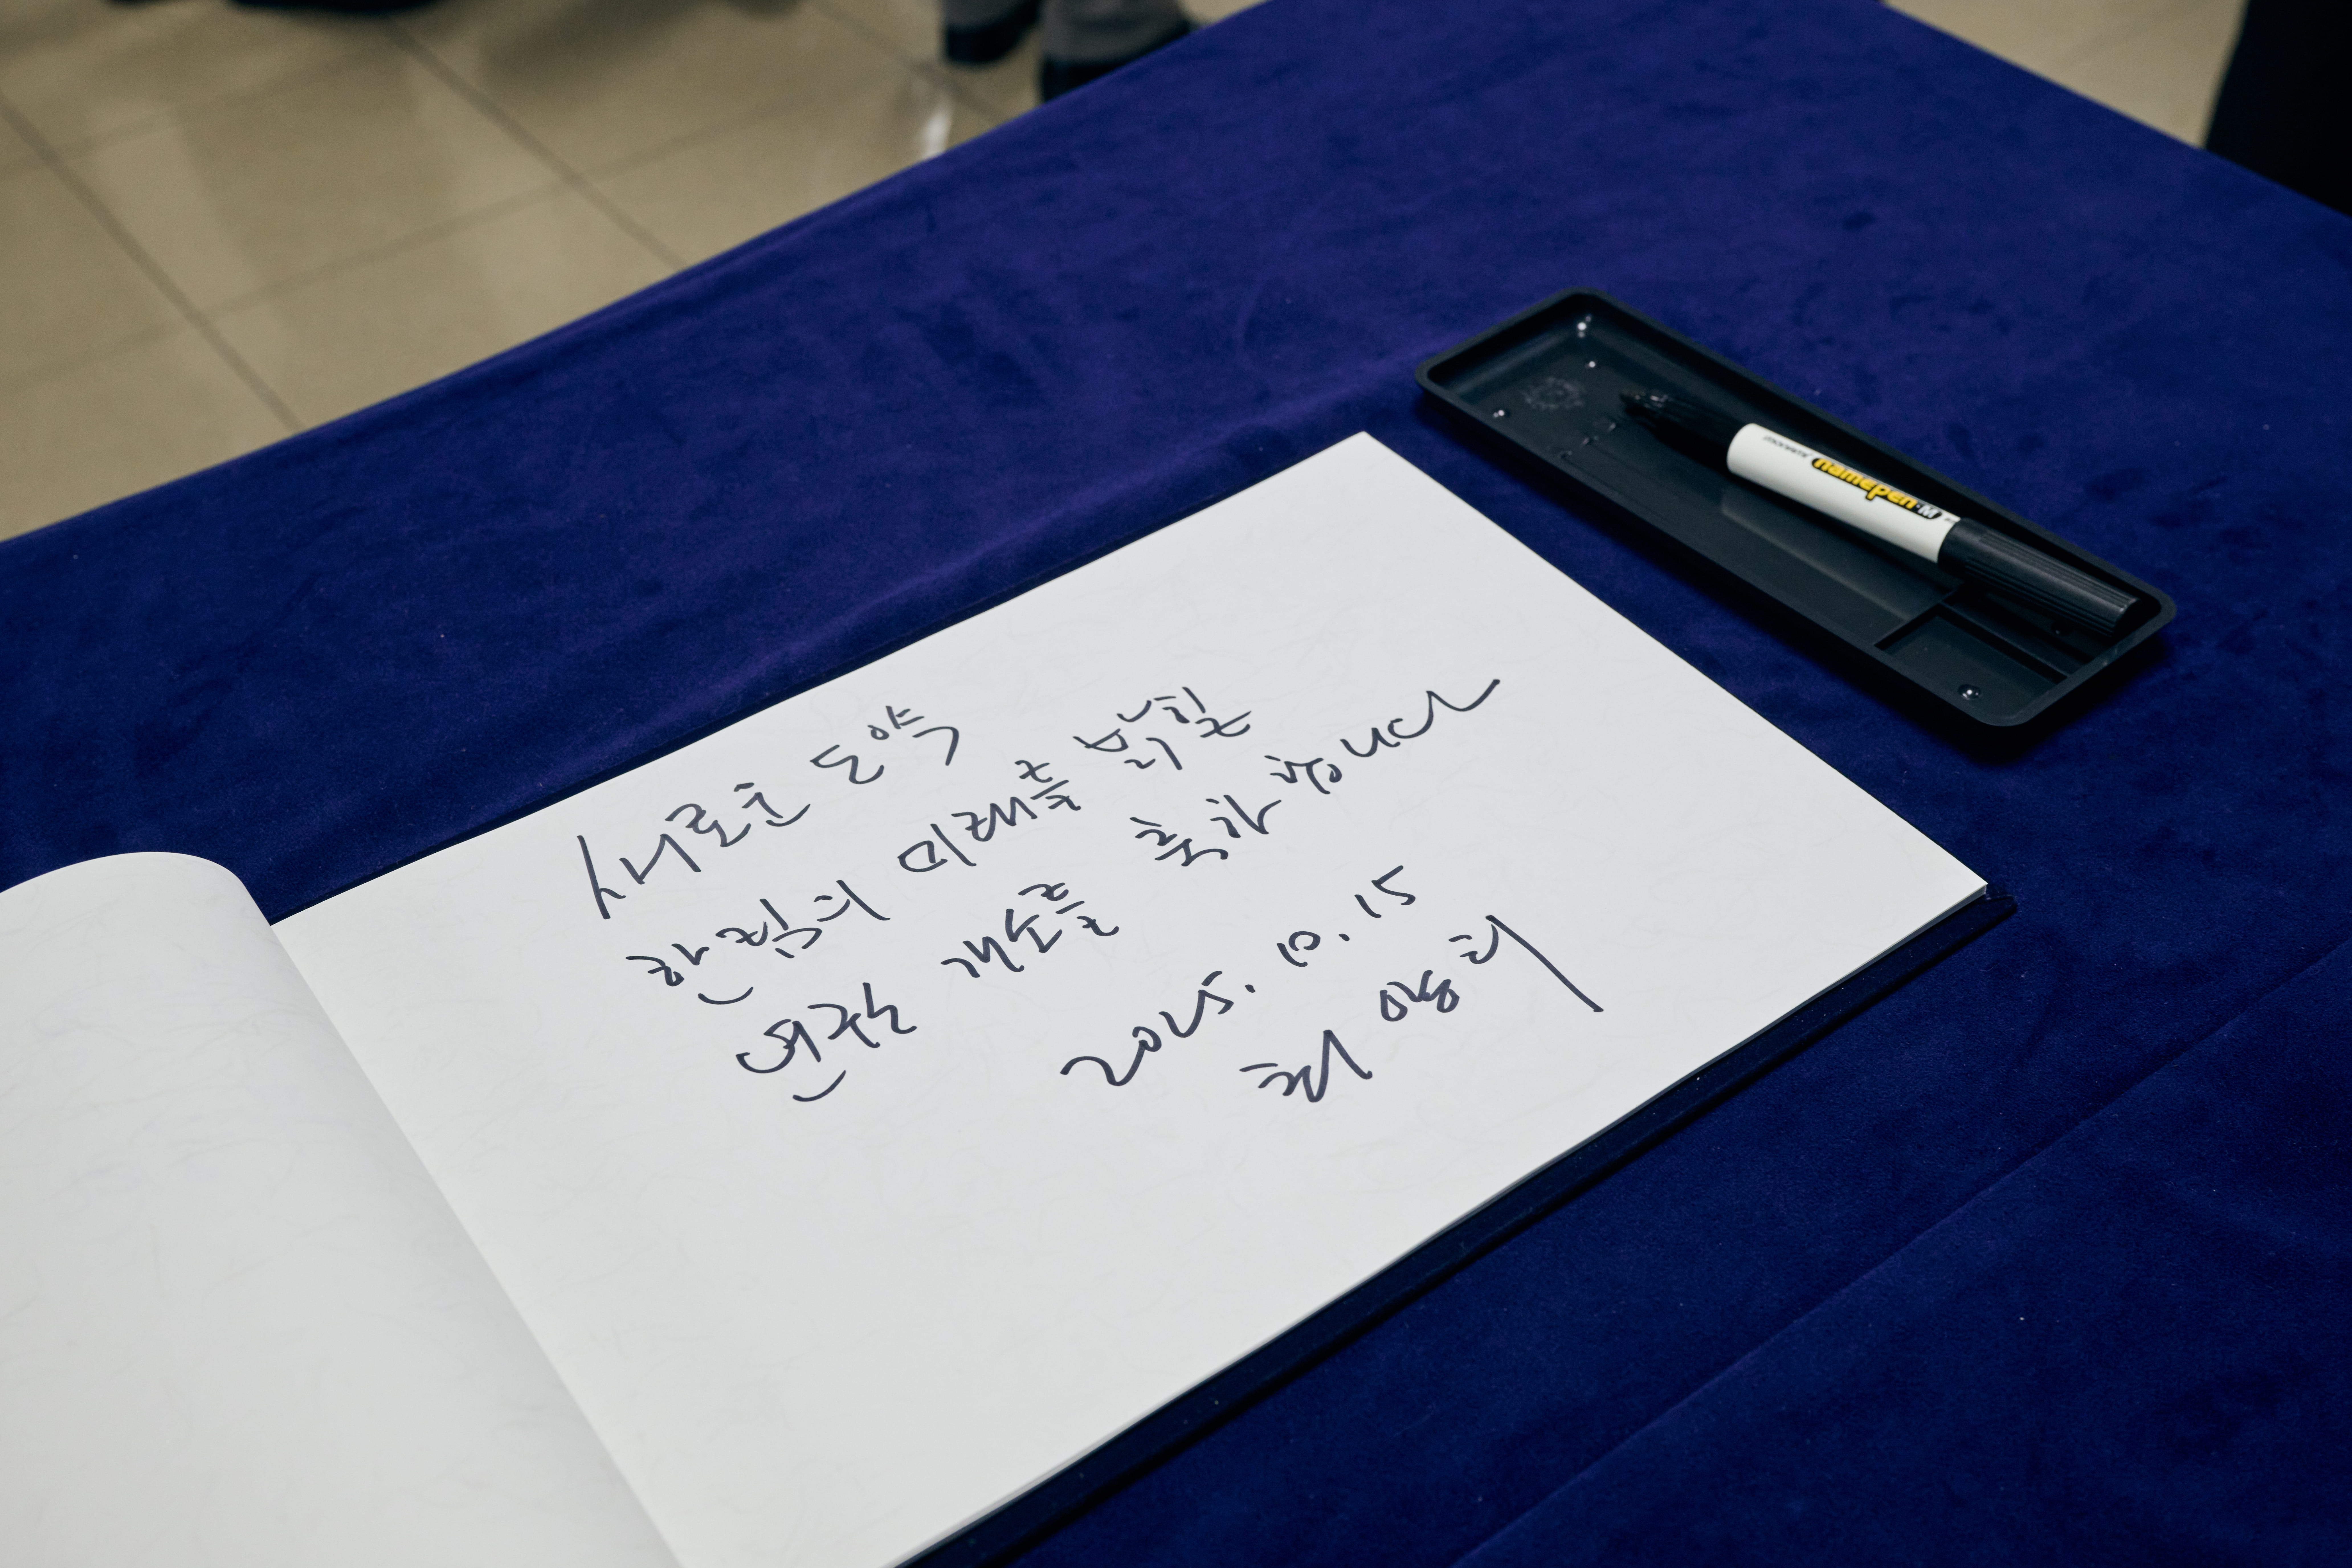 새로운 도약
한림의 미래를 밝힐
연구소 개소를 축하합니다
2025. 10. 15
최양희
namepen·M